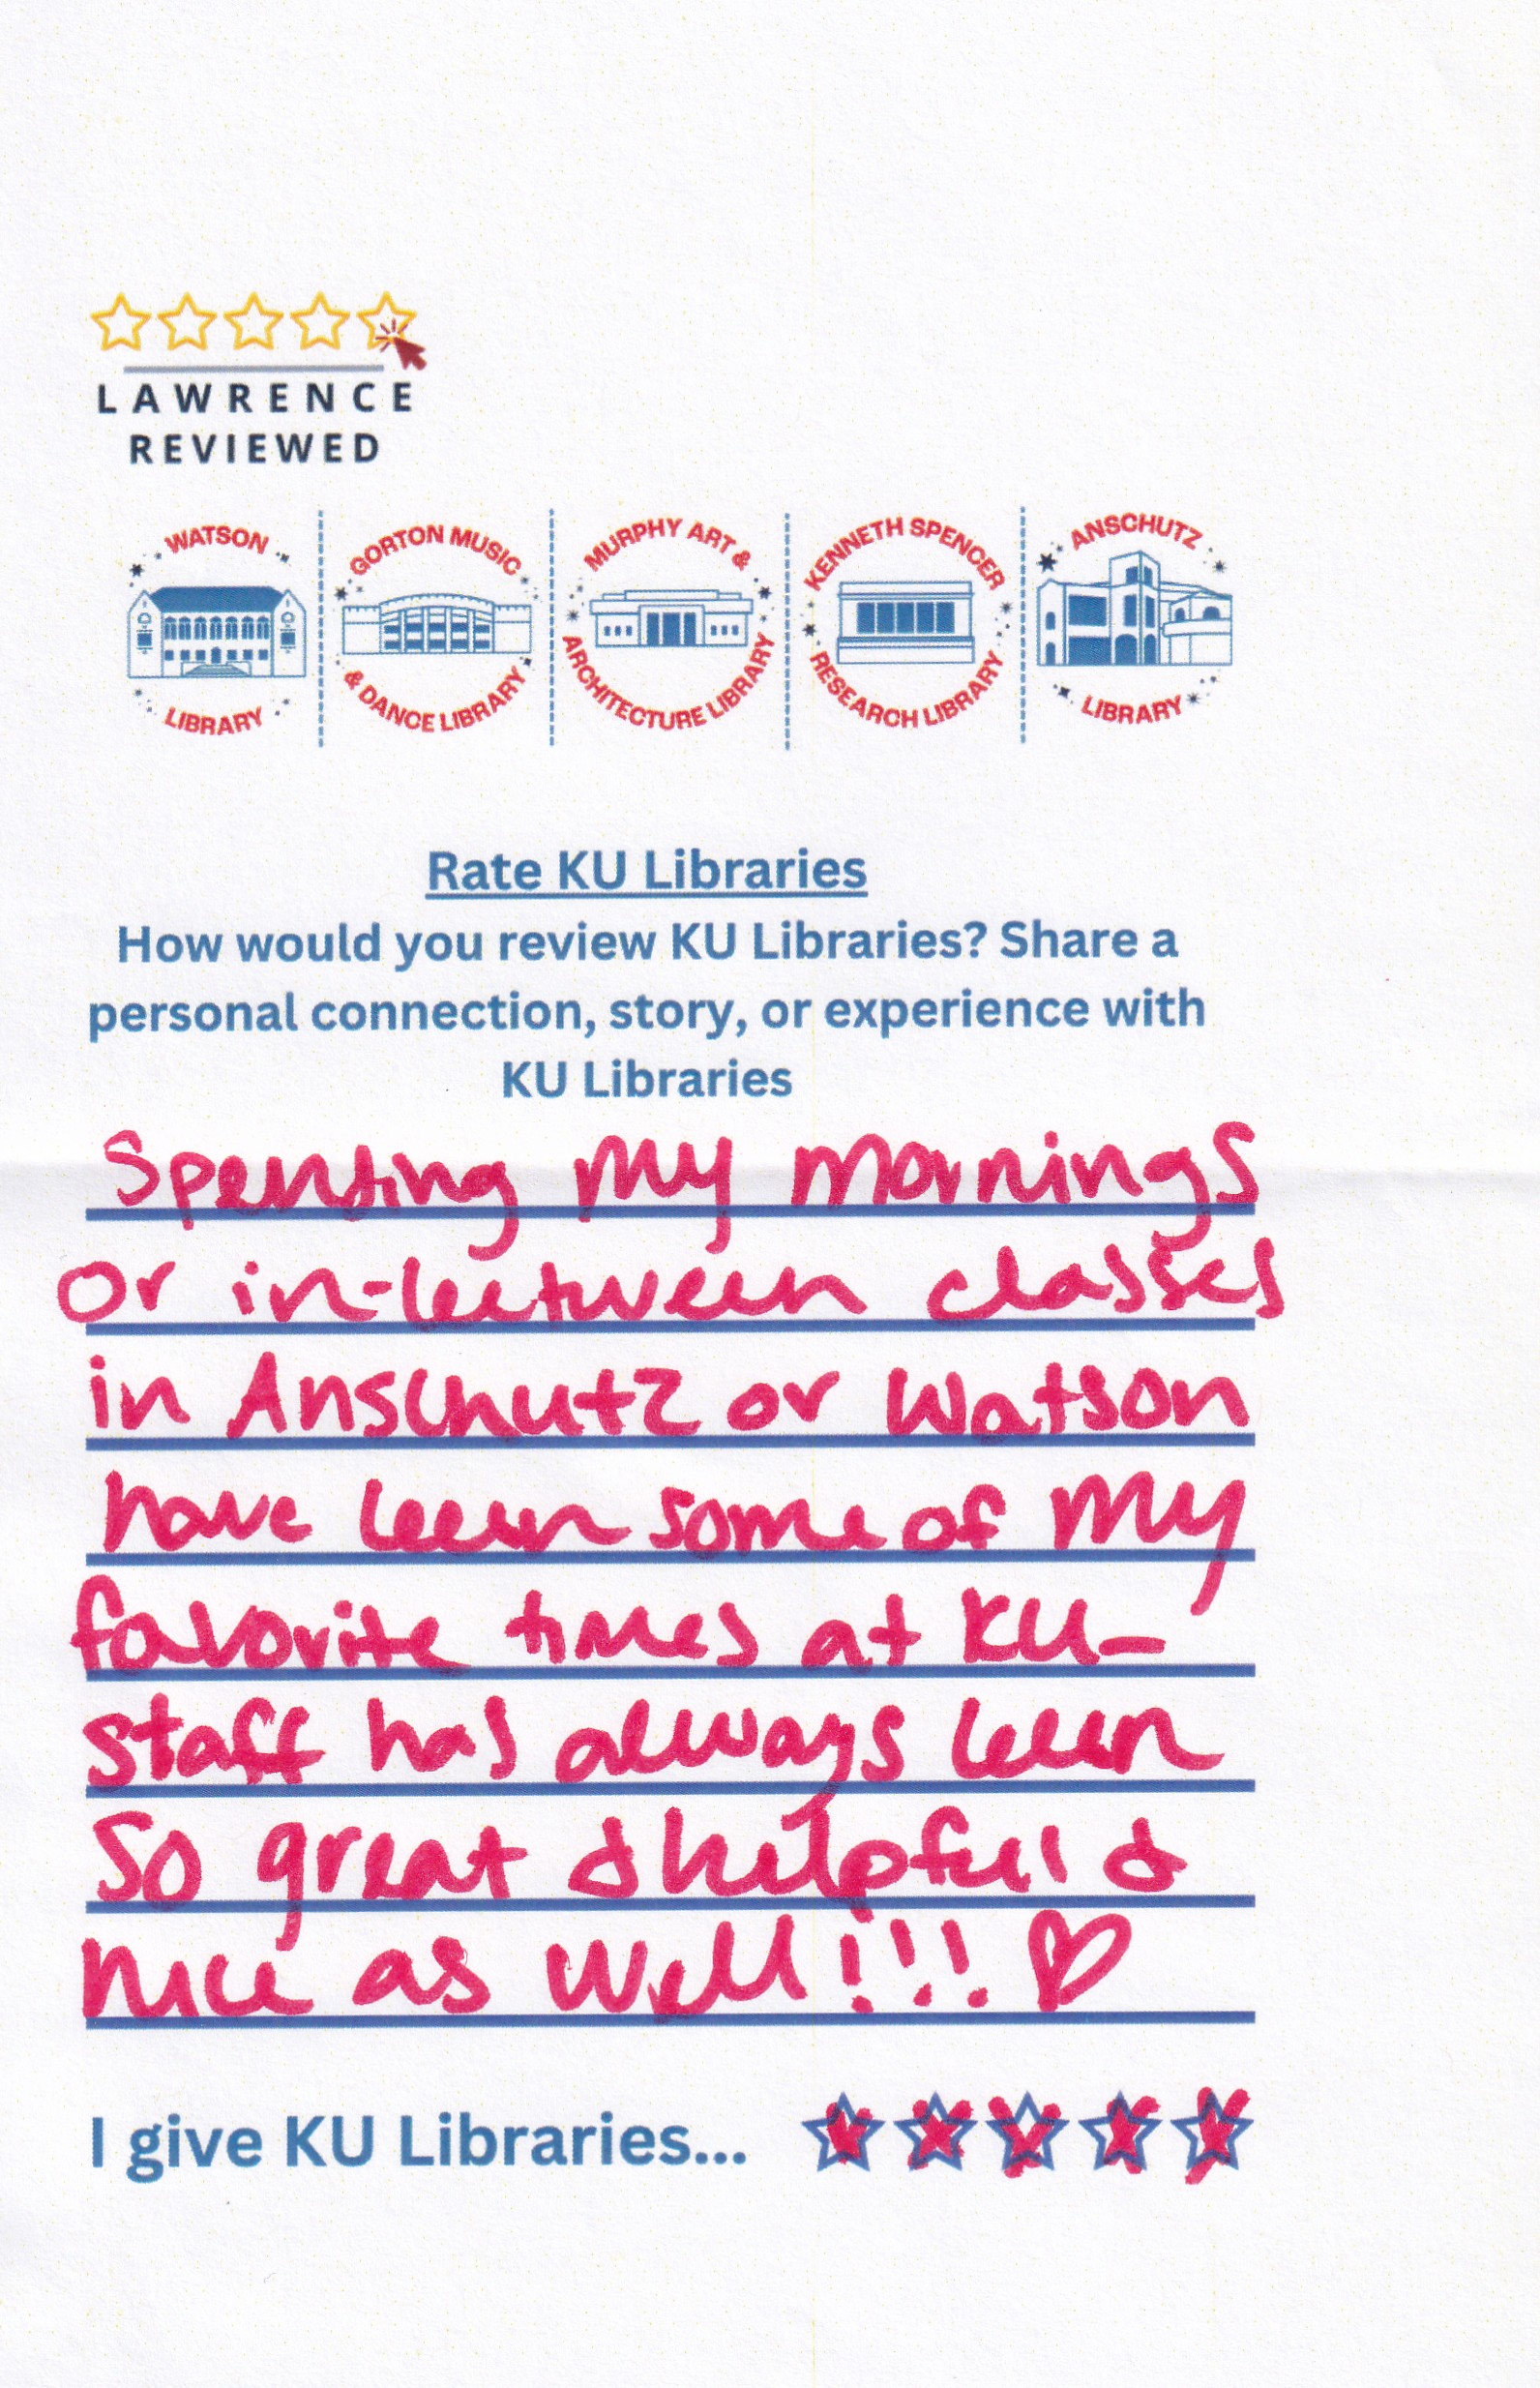 LAWRENCE
REVIEWED
WATSON
LIBRARY
GORTON MUSIC
& DANCE LIBRARY
MURPHY ART &
ARCHITECTURE LIBRARY
KENNETH SPENCER
RESEARCH LIBRARY
ANSCHUTZ
LIBRARY
Rate KU Libraries
How would you review KU Libraries? Share a
personal connection, story, or experience with
KU Libraries
Spending my mornings
or in-between classes
in Anschutz or Watson
have been some of my
favorite times at KU-
staff has always been
so great & helpful &
nice as well!!! ♡
I give KU Libraries...